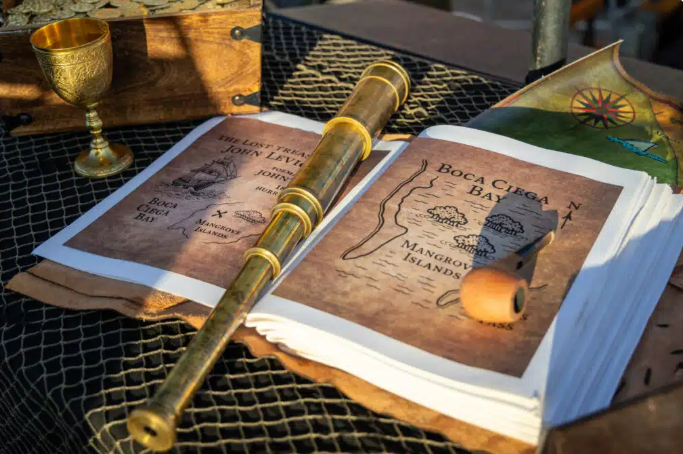 THE LOST
JOHN
JOHN
BOCA
CIEGA
BAY
MANGROVE
ISLANDS
BOCA CIEGA
BAY
N
MANGROVE
ISLANDS